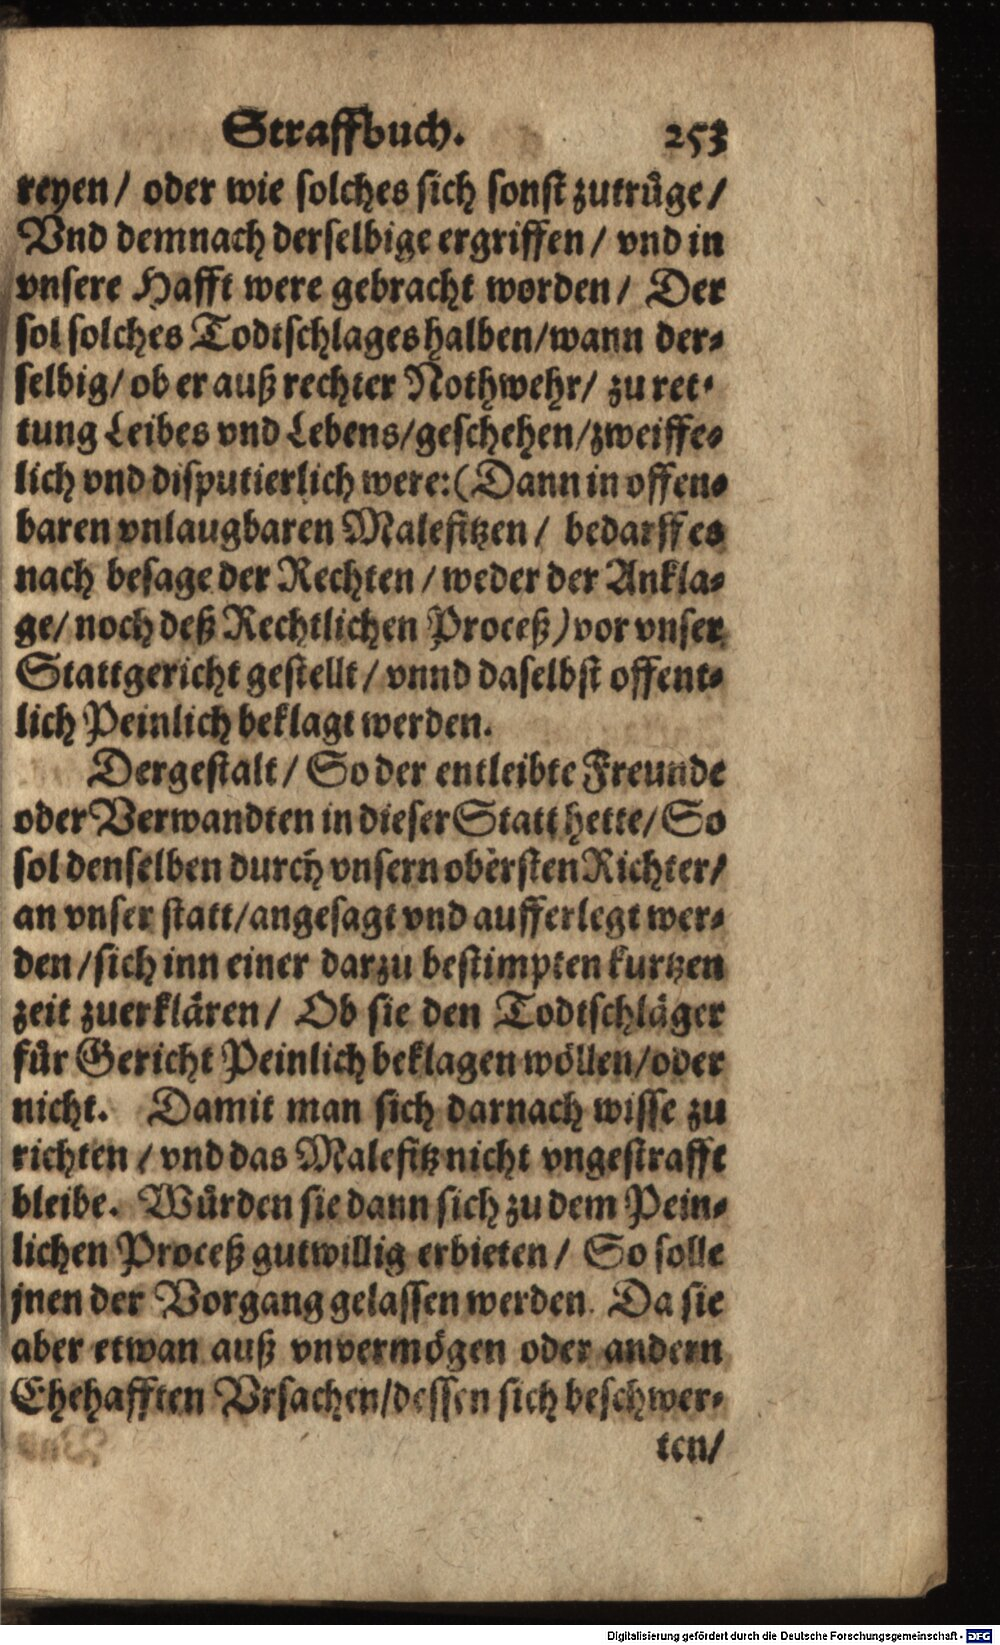 Straffbuch. 253
reyen / oder wie solches sich sonst zutrůge /
Vnd demnach derselbige ergriffen / vnd in
vnsere Hafft were gebracht worden / Der
sol solches Todtschlages halben / wann der⸗
selbig / ob er auß rechter Nothwehr / zu ret⸗
tung Leibes vnd Lebens / geschehen / zweiffe⸗
lich vnd disputierlich were: (Dann in offen⸗
baren vnlaugbaren Malefitzen / bedarff es
nach besage der Rechten / weder der Ankla⸗
ge / noch deß Rechtlichen Proceß) vor vnser
Stattgericht gestellt / vnnd daselbst offent⸗
lich Peinlich beklagt werden.
Dergestalt / So der entleibte Freunde
oder Verwandten in dieser Statt hette / So
sol denselben durch vnsern obersten Richter /
an vnser statt / angesagt vnd aufferlegt wer⸗
den / sich inn einer darzu bestimpten kurtzen
zeit zuerklären / Ob sie den Todtschläger
fůr Gericht Peinlich beklagen wöllen / oder
nicht. Damit man sich darnach wisse zu
richten / vnd das Malefitz nicht vngestrafft
bleibe. Wůrden sie dann sich zu dem Pein⸗
lichen Proceß gutwillig erbieten / So solle
jnen der Vorgang gelassen werden. Da sie
aber etwan auß vnvermögen oder andern
Ehehafften Vrsachen / dessen sich beschwer⸗
ten /
Digitalisierung gefördert durch die Deutsche Forschungsgemeinschaft - DFG